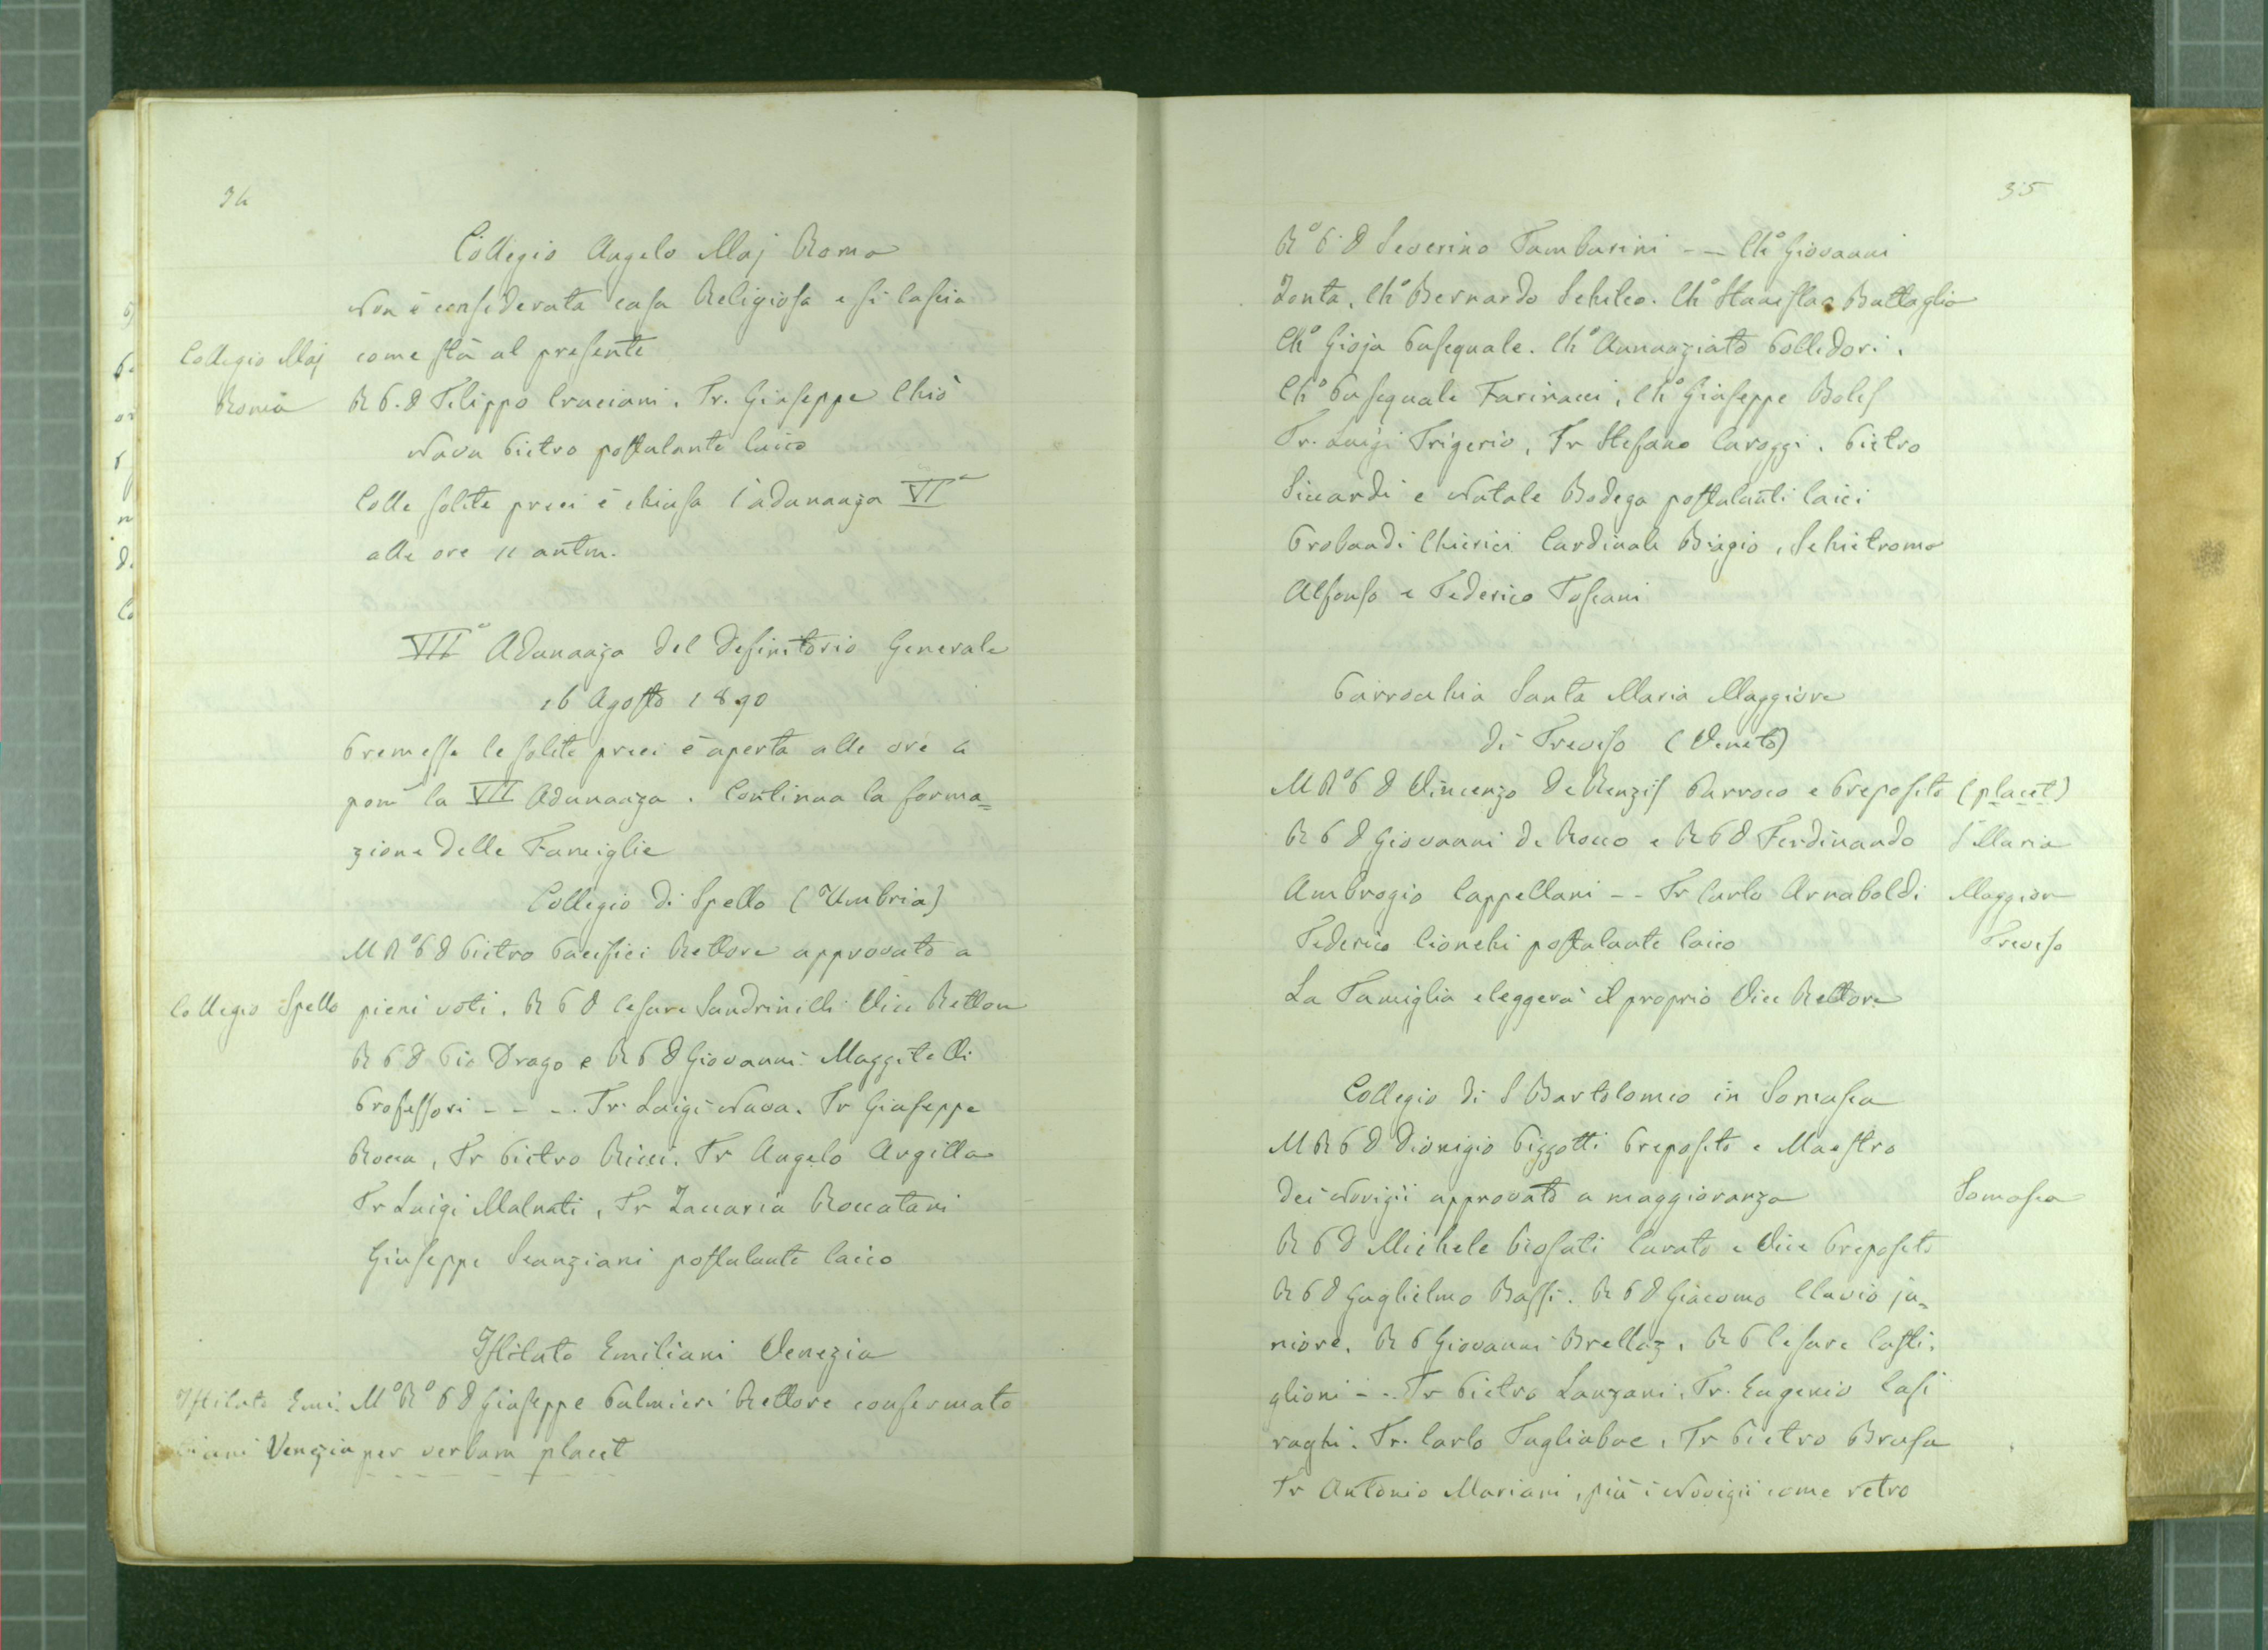 34
Collegio Angelo Maj Roma
Non è considerata casa Religiosa e si lascia
Collegio Maj
come stà al presente
Roma
R P. D Filippo Cruciani. Fr. Giuseppe Chiò
Nava Pietro postulante laico
Colle solite preci è chiusa l'adunanza VIª
alle ore 11 antm.
VIIª Adunanza del Definitorio Generale
16 Agosto 1890
Premesse le solite preci è aperta alle ore 4
pom la VII Adunanza. Continua la forma=
zione delle Famiglie
Collegio di Spello (Umbria)
M Rº P D Pietro Pacifici Rettore approvato a
Collegio Spello
pieni voti. R P D Cesare Sandrinelli Vice Rettore
R P D Pio Drago e R P D Giovanni Maggitelli
Professori - - - . Fr. Luigi Nava. Fr Giuseppe
Rocca, Fr Pietro Ricci. Fr Angelo Argilla
Fr Luigi Malnati, Fr Zaccaria Roccatani
Giuseppe Scanziani postulante laico
Istituto Emiliani Venezia
Istituto Emi.
Mº Rº P D Giuseppe Palmieri Rettore confermato
liani Venezia
per verbum placet
35
Rº P. D Severino Tamburini - - Chº Giovanni
Zonta, Chº Bernardo Schileo. Chº Stanislao Battaglia
Chº Gioja Pasequale. Chº Annunziato Pollidori.
Chº Pasequale Farinacci, Chº Giuseppe Boles
Fr. Luigi Frigerio, Fr Stefano Caroggi. Pietro
Siccardi e Natale Bodega postulanti laici
Probandi Chierici Cardinale Biagio, Schietroma
Alfonso e Federico Toscani
Parrocchia Santa Maria Maggiore
di Treviso (Veneto)
M Rº P D Vincenzo De Renzis Parroco e Preposito (placet)
R P D Giovanni De Rocco e R P D Ferdinando
S Maria
Ambrogio Cappellani - - Fr Carlo Arnaboldi
Maggior
Federico Cionchi postulante laico
Treviso
La Famiglia eleggerà il proprio Vice Rettore
Collegio di S Bartolomeo in Somasca
M R P D Dionigio Pizzotti Preposito e Maestro
dei Novizii approvato a maggioranza
Somasca
R P D Michele Piosati Curato e Vice Preposito
R P D Guglielmo Bassi. R P D Giacomo Clavio ju=
niore. R P Giovanni Brellaz. R P Cesare Casti.
glioni - - . Fr Pietro Lanzani. Fr. Eugenio Casi
raghi. Fr. Carlo Tagliabue. Fr Pietro Brusa
Fr Antonio Mariani, più i Novizii come retro